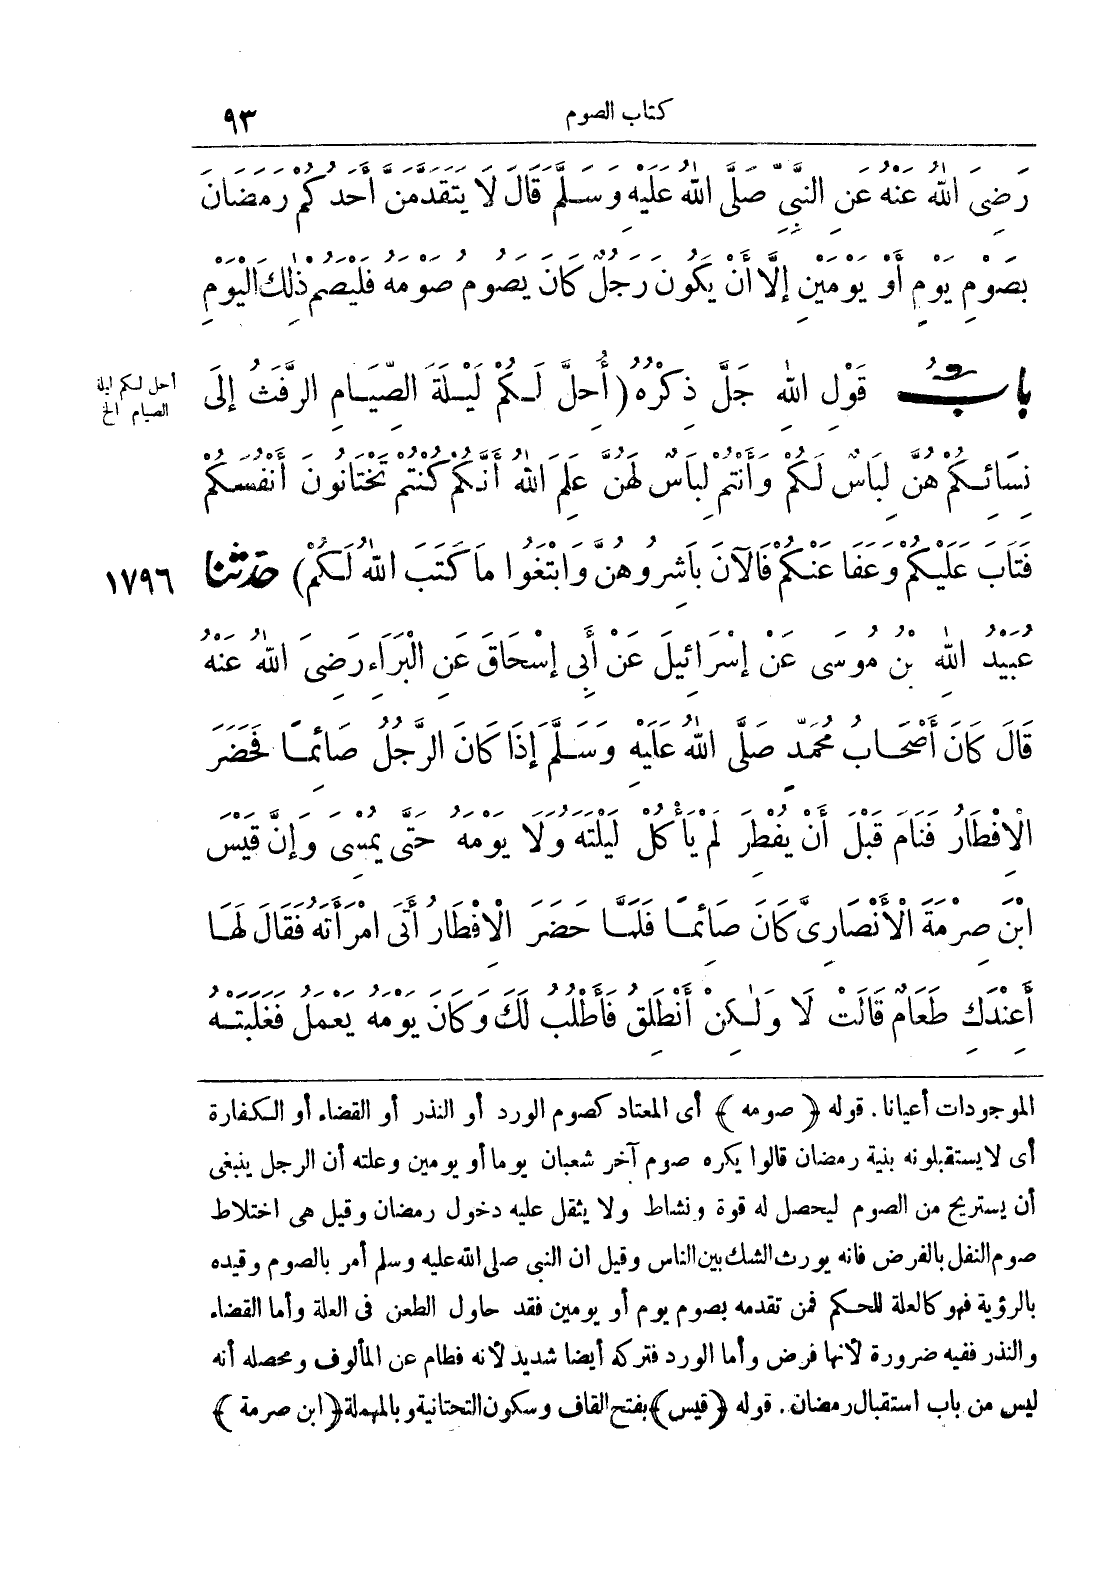 كتاب الصوم ٩٣
رَضِيَ اللهُ عَنْهُ عَنِ النَّبِيِّ صَلَّى اللهُ عَلَيْهِ وَسَلَّمَ قَالَ لَا يَتَقَدَّمَنَّ أَحَدُكُمْ رَمَضَانَ
بِصَوْمِ يَوْمٍ أَوْ يَوْمَيْنِ إِلَّا أَنْ يَكُونَ رَجُلٌ كَانَ يَصُومُ صَوْمَهُ فَلْيَصُمْ ذٰلِكَ الْيَوْمَ
بابُ قَوْلِ اللهِ جَلَّ ذِكْرُهُ (أُحِلَّ لَكُمْ لَيْلَةَ الصِّيَامِ الرَّفَثُ إِلَى
أحل لكم ليلة
الصيام الخ
نِسَائِكُمْ هُنَّ لِبَاسٌ لَكُمْ وَأَنْتُمْ لِبَاسٌ لَهُنَّ عَلِمَ اللهُ أَنَّكُمْ كُنْتُمْ تَخْتَانُونَ أَنْفُسَكُمْ
فَتَابَ عَلَيْكُمْ وَعَفَا عَنْكُمْ فَالْآنَ بَاشِرُوهُنَّ وَابْتَغُوا مَا كَتَبَ اللهُ لَكُمْ) حَدَّثَنَا
١٧٩٦
عُبَيْدُ اللهِ بْنُ مُوسَى عَنْ إِسْرَائِيلَ عَنْ أَبِي إِسْحَاقَ عَنِ الْبَرَاءِ رَضِيَ اللهُ عَنْهُ
قَالَ كَانَ أَصْحَابُ مُحَمَّدٍ صَلَّى اللهُ عَلَيْهِ وَسَلَّمَ إِذَا كَانَ الرَّجُلُ صَائِمًا فَحَضَرَ
الْإِفْطَارُ فَنَامَ قَبْلَ أَنْ يُفْطِرَ لَمْ يَأْكُلْ لَيْلَتَهُ وَلَا يَوْمَهُ حَتَّى يُمْسِيَ وَإِنَّ قَيْسَ
ابْنَ صِرْمَةَ الْأَنْصَارِيَّ كَانَ صَائِمًا فَلَمَّا حَضَرَ الْإِفْطَارُ أَتَى امْرَأَتَهُ فَقَالَ لَهَا
أَعِنْدَكِ طَعَامٌ قَالَتْ لَا وَلٰكِنْ أَنْطَلِقُ فَأَطْلُبُ لَكَ وَكَانَ يَوْمَهُ يَعْمَلُ فَغَلَبَتْهُ
الموجودات أعيانا. قوله ﴿صومه﴾ أى المعتاد كصوم الورد أو النذر أو القضاء أو الكفارة
أى لا يستقبلونه بنية رمضان قالوا يكره صوم آخر شعبان يوما أو يومين وعلته أن الرجل ينبغى
أن يستريح من الصوم ليحصل له قوة ونشاط ولا يثقل عليه دخول رمضان وقيل هى اختلاط
صوم النفل بالفرض فانه يورث الشك بين الناس وقيل ان النبى صلى الله عليه وسلم أمر بالصوم وقيده
بالرؤية فهو كالعلة للحكم فمن تقدمه بصوم يوم أو يومين فقد حاول الطعن فى العلة وأما القضاء
والنذر ففيه ضرورة لأنها فرض وأما الورد فتركه أيضا شديد لأنه فطام عن المألوف ومحصله أنه
ليس من باب استقبال رمضان. قوله ﴿قيس﴾ بفتح القاف وسكون التحتانية وبالمهملة ﴿ابن صرمة﴾